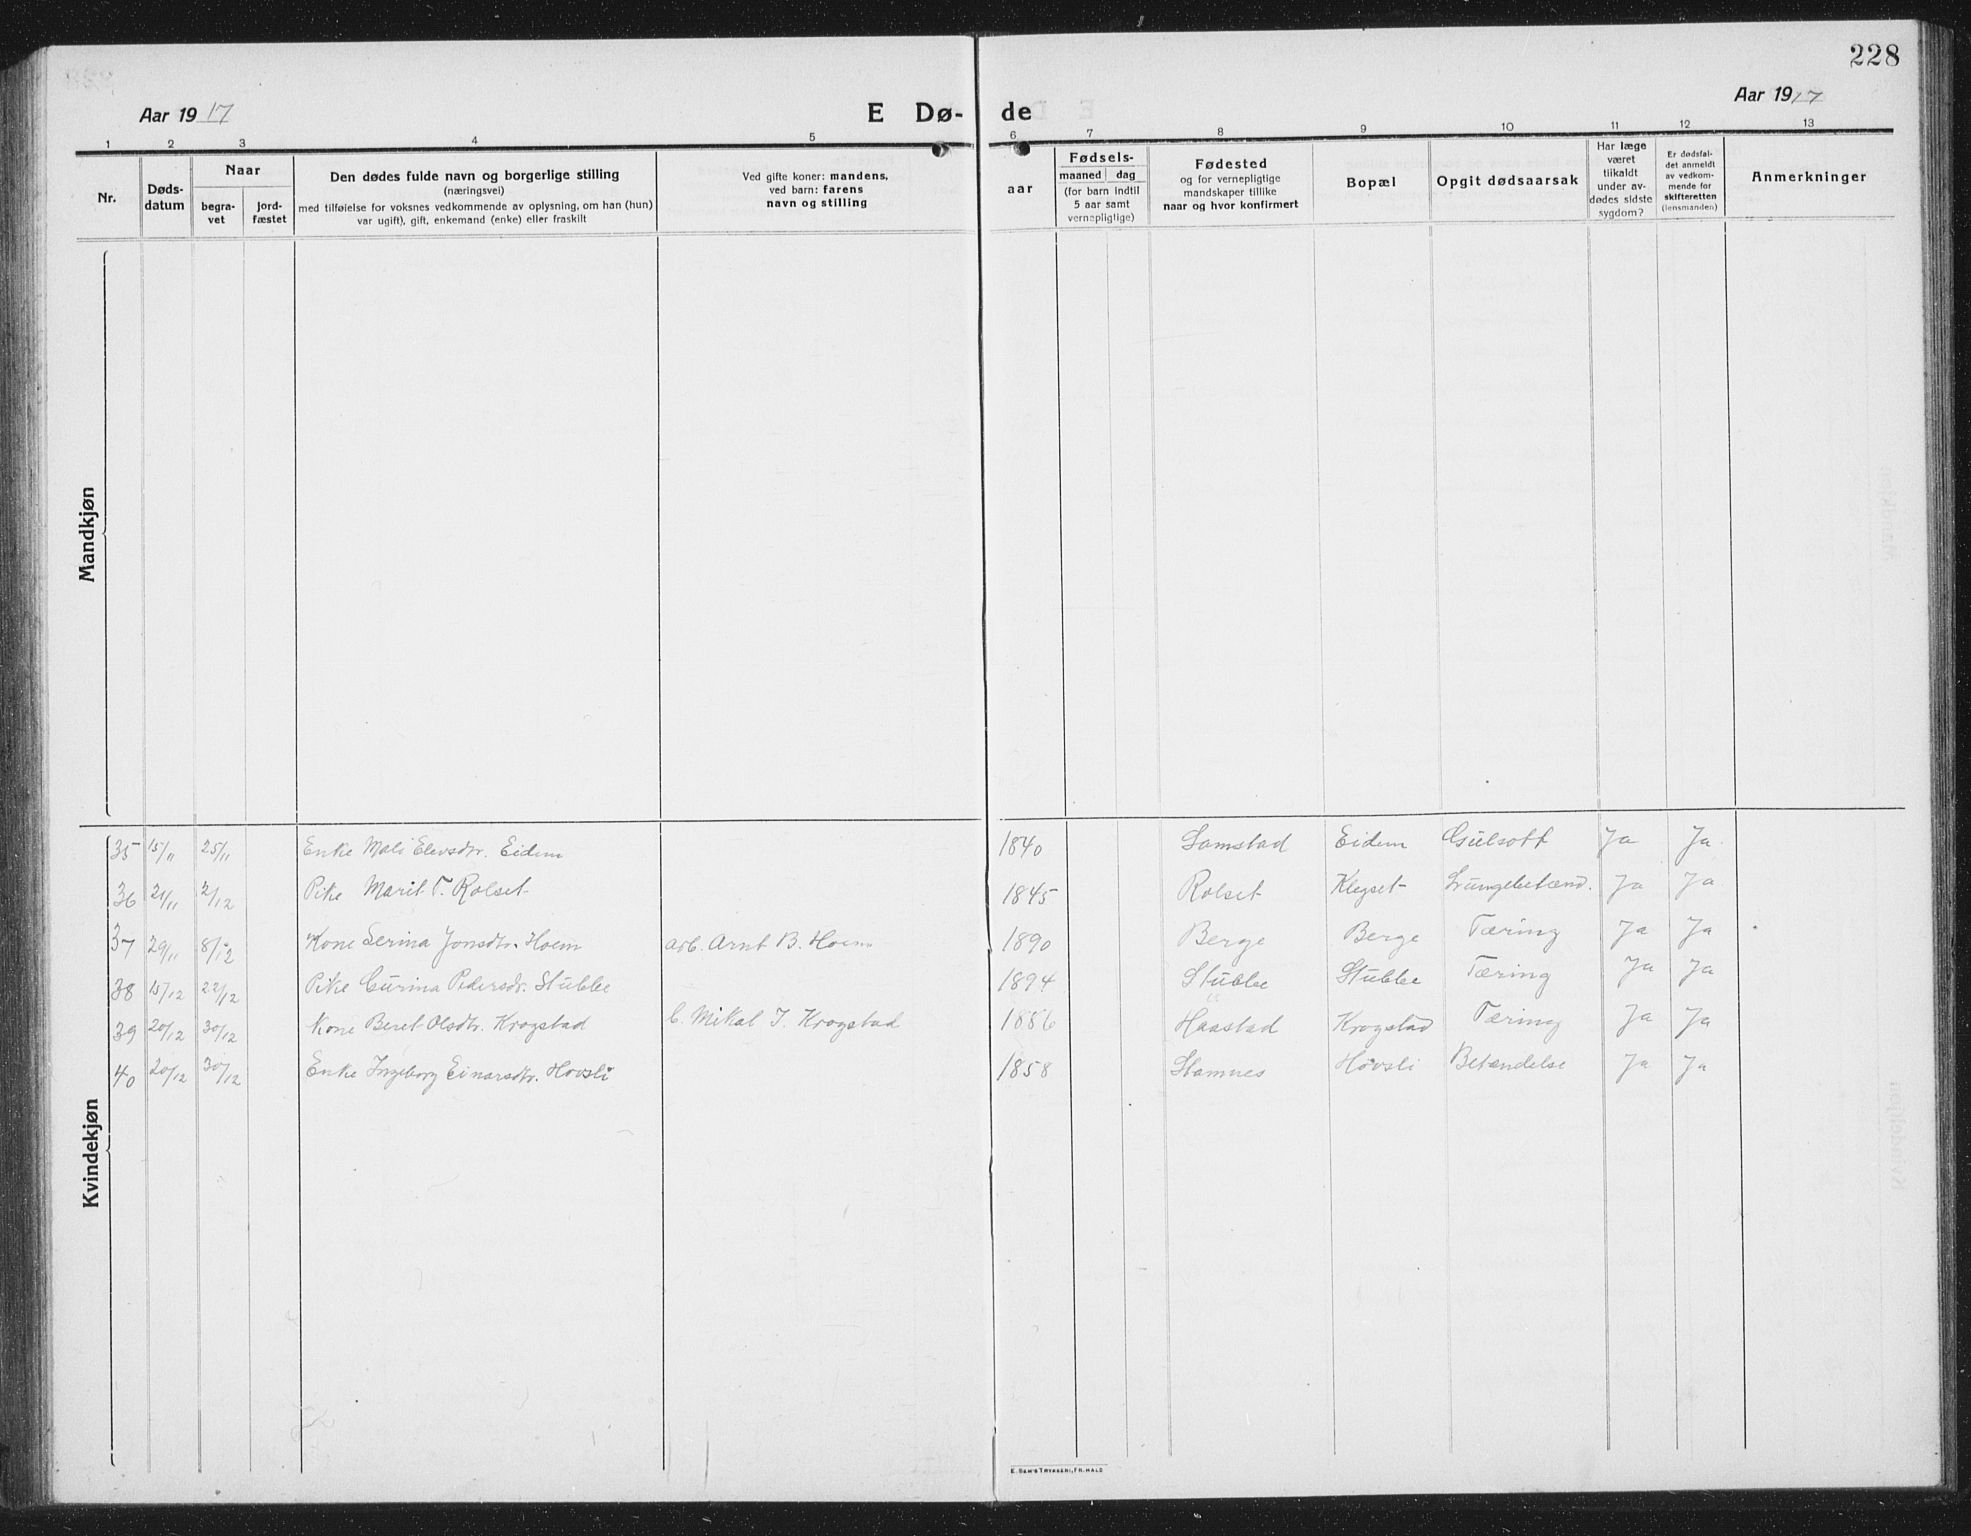 228
Aar 1917
E Dø-
de
Aar 1917
1 2 3 4 5 6 7 8 9 10 11 12 13
Nr.
Døds-
datum
Naar
begra-
vet
jord-
fæstet
Den dødes fulde navn og borgerlige stilling
(næringsvei)
med tilføielse for voksnes vedkommende av oplysning, om han (hun)
var ugift), gift, enkemand (enke) eller fraskilt
Ved gifte koner: mandens,
ved barn: farens
navn og stilling
aar
Fødsels-
maaned dag
(for barn indtil
5 aar samt
vernepligtige)
Fødested
og for vernepligtige
mandskaper tillike
naar og hvor konfirmert
Bopæl
Opgit dødsaarsak
Har læge
været
tilkaldt
under av-
dødes sidste
sygdom?
Er dødsfal-
det anmeldt
av vedkom-
mende for
skifteretten
(lensmanden)
Anmerkninger
Mandkjøn
Kvindekjøn
35 15/11 25/11 Enke Mali Elevsdtr. Eidem 1840 Samstad Eidem Gulsott Ja Ja
36 21/11 2/12 Pike Marit T. Rolset 1845 Rolset Klegset Lungebetænd. Ja Ja
37 29/11 8/12 Kone Serina Jonsdtr. Hoem arb. Arnt B. Hoem 1890 Berge Berge Tæring Ja Ja
38 15/12 22/12 Pike Gurina Pedersdr. Stubbe 1894 Stubbe Stubbe Tæring Ja Ja
39 20/12 30/12 Kone Beret Olsdtr. Krogstad Mikal J. Krogstad 1856 Haastad Krogstad Tæring Ja Ja
40 20/12 30/12 Enke Ingeborg Einarsdtr. Hovsli 1858 Stamnes Hovsli Betændelse Ja Ja
E. SEM'S TRYKKERI, FR.HALD